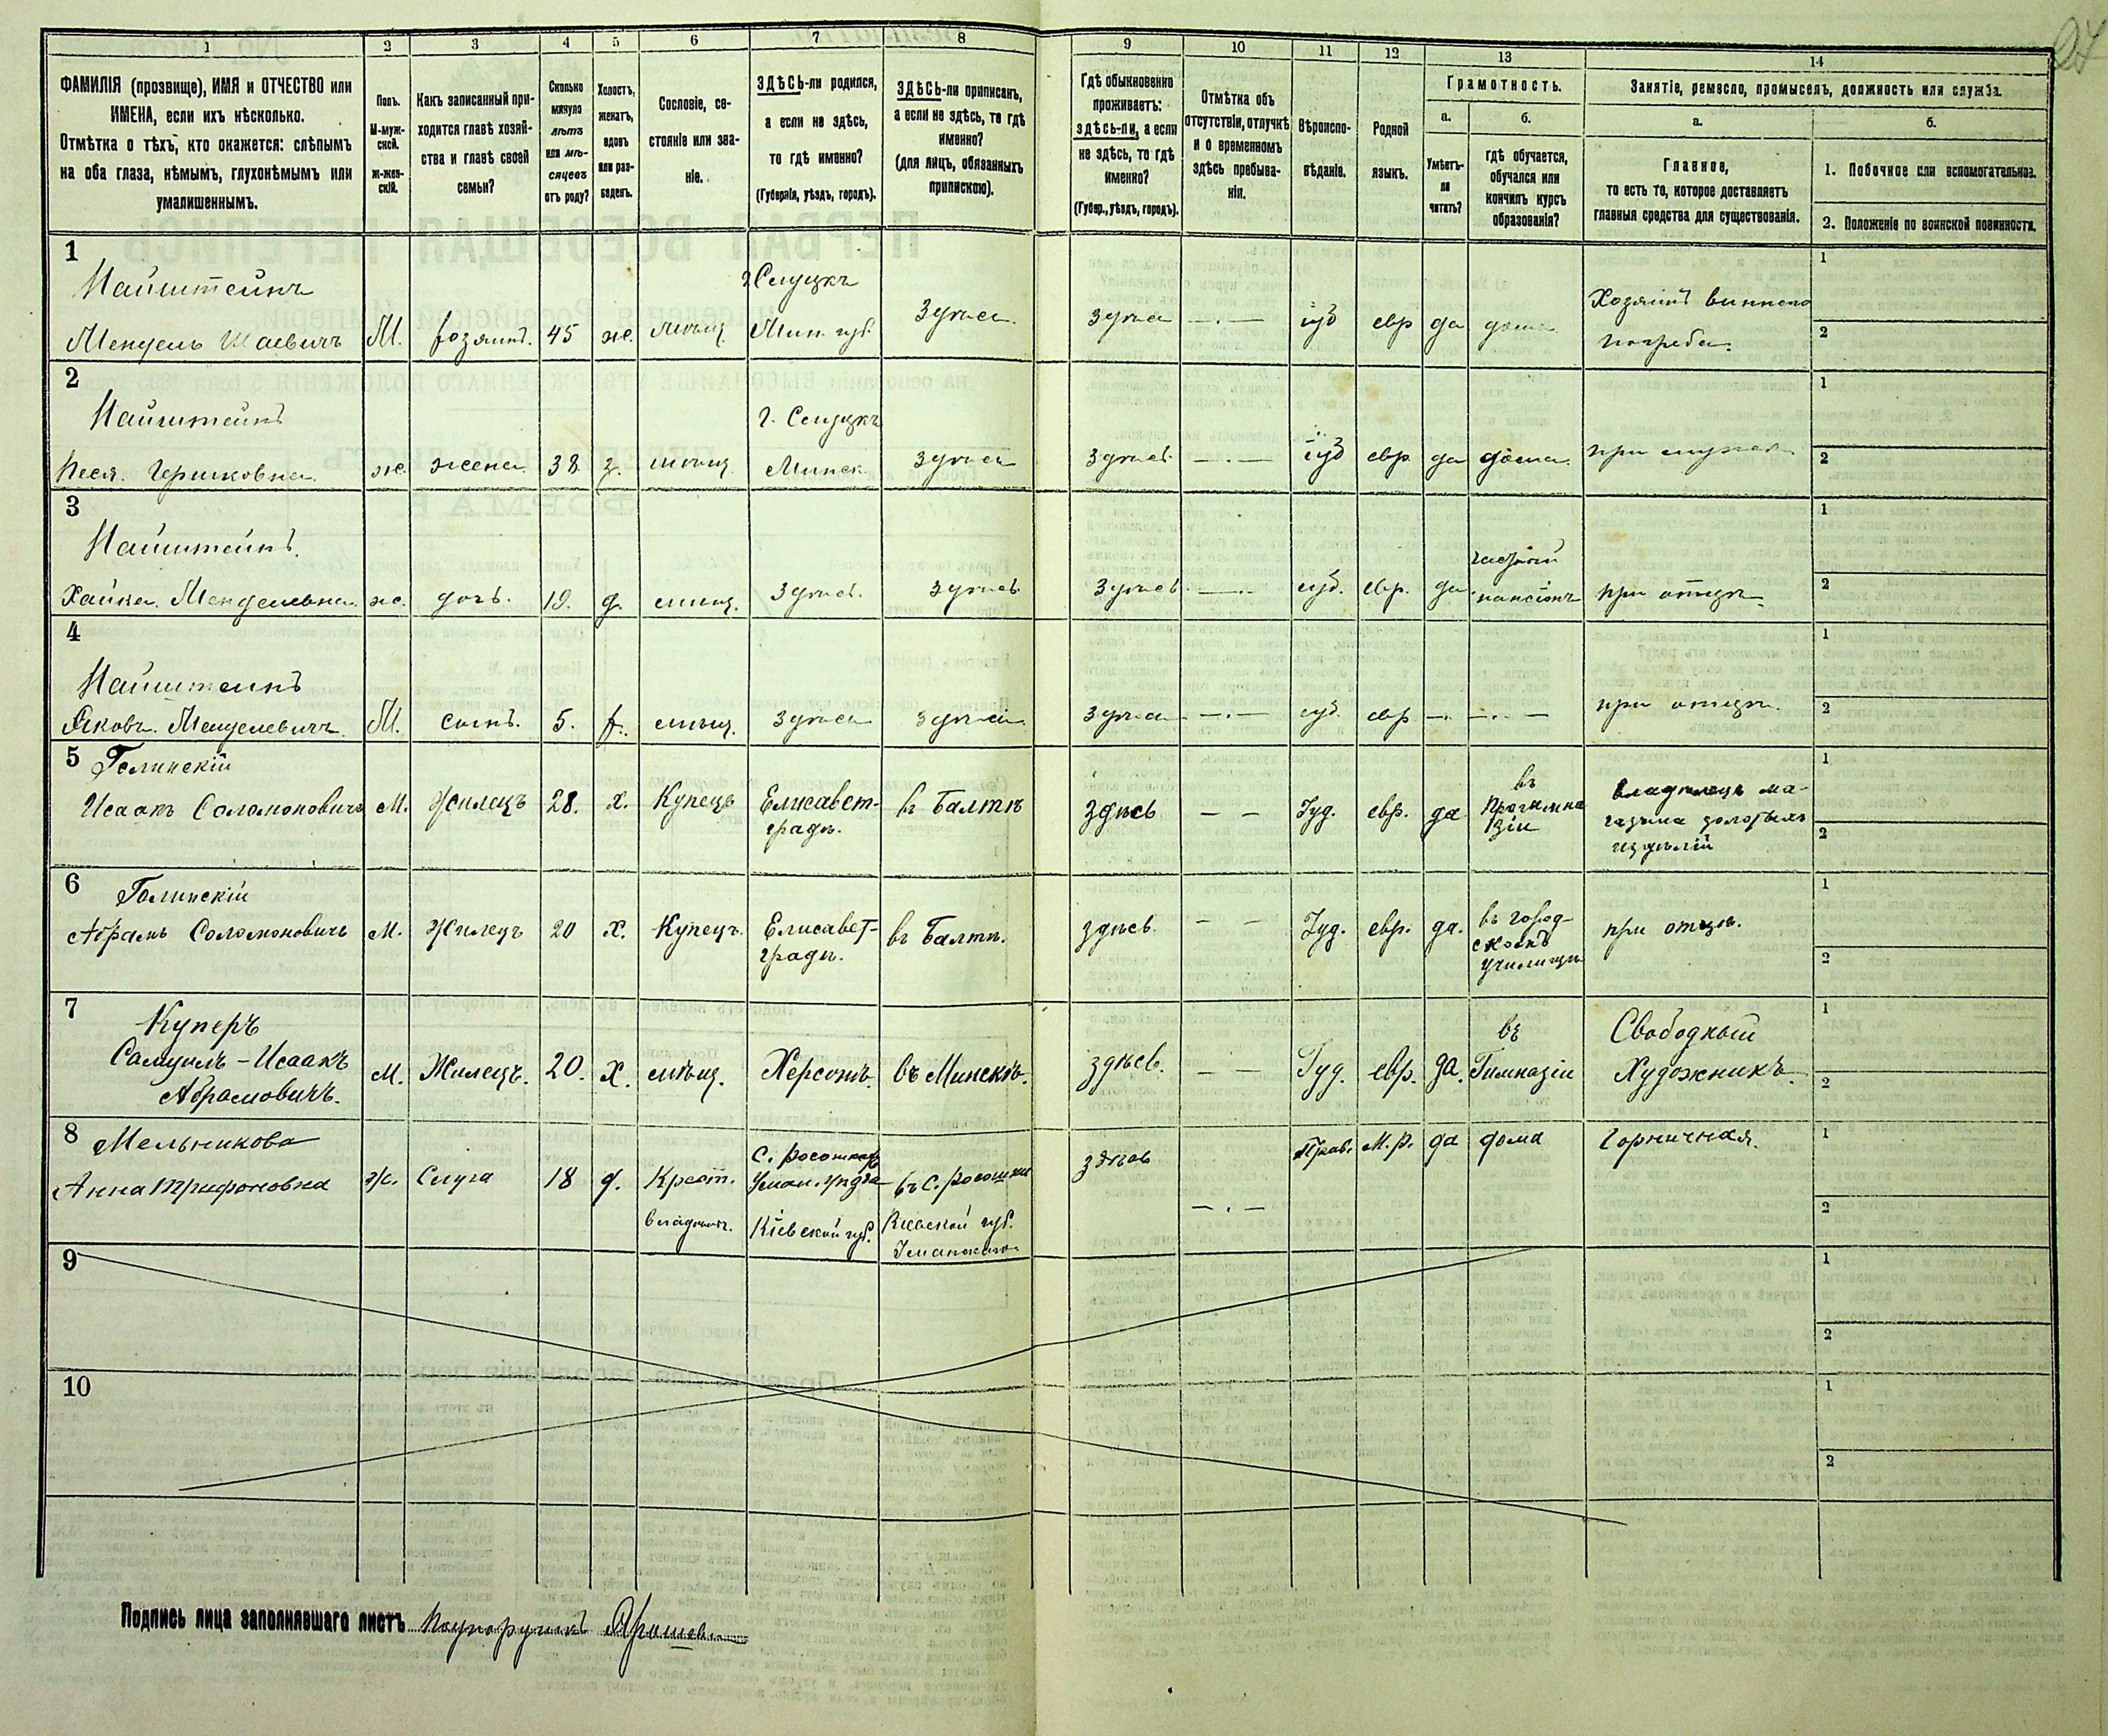 24
1 2 3 4 5 6 7 8 9 10 11 12 13 14
ФАМИЛІЯ (прозвище), ИМЯ и ОТЧЕСТВО или
ИМЕНА, если ихъ нѣсколько.
Отмѣтка о тѣхъ, кто окажется: слѣпымъ
на оба глаза, нѣмымъ, глухонѣмымъ или
умалишеннымъ.
Полъ.
М-муж-
ской.
ж-жен-
скій.
Какъ записанный при-
ходится главѣ хозяй-
ства и главѣ своей
семьи?
Сколько
минуло
лѣтъ
или мѣ-
сяцевъ
отъ роду?
Холостъ,
женатъ,
вдовъ
или раз-
веденъ.
Сословіе, со-
стояніе или зва-
ніе.
ЗДѢСЬ-ли родился,
а если не здѣсь,
то гдѣ именно?
(Губернія, уѣздъ, городъ).
ЗДѢСЬ-ли приписанъ,
а если не здѣсь, то гдѣ
именно?
(для лицъ, обязанныхъ
припискою).
Гдѣ обыкновенно
проживаетъ:
здѣсь-ли, а если
не здѣсь, то гдѣ
именно?
(Губер., уѣздъ, городъ).
Отмѣтка объ
отсутствіи, отлучкѣ
и о временномъ
здѣсь пребыва-
ніи.
Вѣроиспо-
вѣданіе.
Родной
языкъ.
Грамотность.
а.
Умѣетъ-
ли
читать?
б.
гдѣ обучается,
обучался или
кончилъ курсъ
образованія?
Занятіе, ремесло, промыселъ, должность или служба.
а.
Главное,
то есть то, которое доставляетъ
главныя средства для существованія.
б.
1. Побочное или вспомогательное.
2. Положеніе по воинской повинности.
1
Найштейнъ
Мендель Шаевичъ
М.
хозяинъ.
45
ж.
мѣщ.
г. Слуцкъ
Мин. губ.
Здѣсь
здѣсь
— . —
іуд
евр
да
дома
Хозяинъ виннаго
погреба.
1
2
2
Найштейнъ
Песя Гершковна
ж.
жена
38
з.
мѣщ
г. Слуцкъ
Минск.
здѣсь
здѣсь
— . —
іуд
евр
да
дома
при мужѣ
1
2
3
Найштейнъ.
Хайка Менделевна
ж.
дочь.
19.
д.
мѣщ.
здѣсь
здѣсь
здѣсь
іуд.
евр.
да
частный
пансіонъ
при отцѣ
1
2
4
Найштейнъ
Яковъ Менделевичъ
М.
сынъ.
5.
х.
мѣщ.
здѣсь
здѣсь
здѣсь
— . —
іуд.
евр
— . —
— . —
при отцѣ
1
2
5 Голинскій
Исаакъ Соломоновичъ
М.
Жилецъ
28.
х.
Купецъ
Елисавет-
градъ.
въ Балтѣ
здѣсь
— —
Іуд.
евр.
да
въ
Прогимна
зіи
владѣлецъ ма-
газина золотыхъ
издѣлій
1
2
6 Голинскій
Абрамъ Соломоновичъ
М.
Жилецъ
20
х.
Купецъ.
Елисавет-
градъ.
въ Балтѣ.
здѣсь.
— —
Іуд.
евр.
да.
въ город-
скомъ
училищѣ
при отцѣ.
1
2
7
Куперъ
Самуилъ-Исаакъ
Абрамовичъ.
М.
Жилецъ.
20.
х.
мѣщ.
Херсонъ
въ Минскѣ.
здѣсь.
— —
Іуд.
евр.
да.
въ
Гимназіи
Свободный
Художникъ.
1
2
8 Мельникова
Анна Трифоновна
ж.
Слуга
18
д.
Крест.
владѣльч.
С. Росошкахъ
Уман. уѣзда
Кіевской губ.
въ С. Росошки
Кіевской губ.
Уманскаго
здѣсь
— . —
Прав.
М. р.
да
дома
Горничная.
1
2
9
1
2
10
1
2
Подпись лица заполнявшаго листъ Подпоручикъ